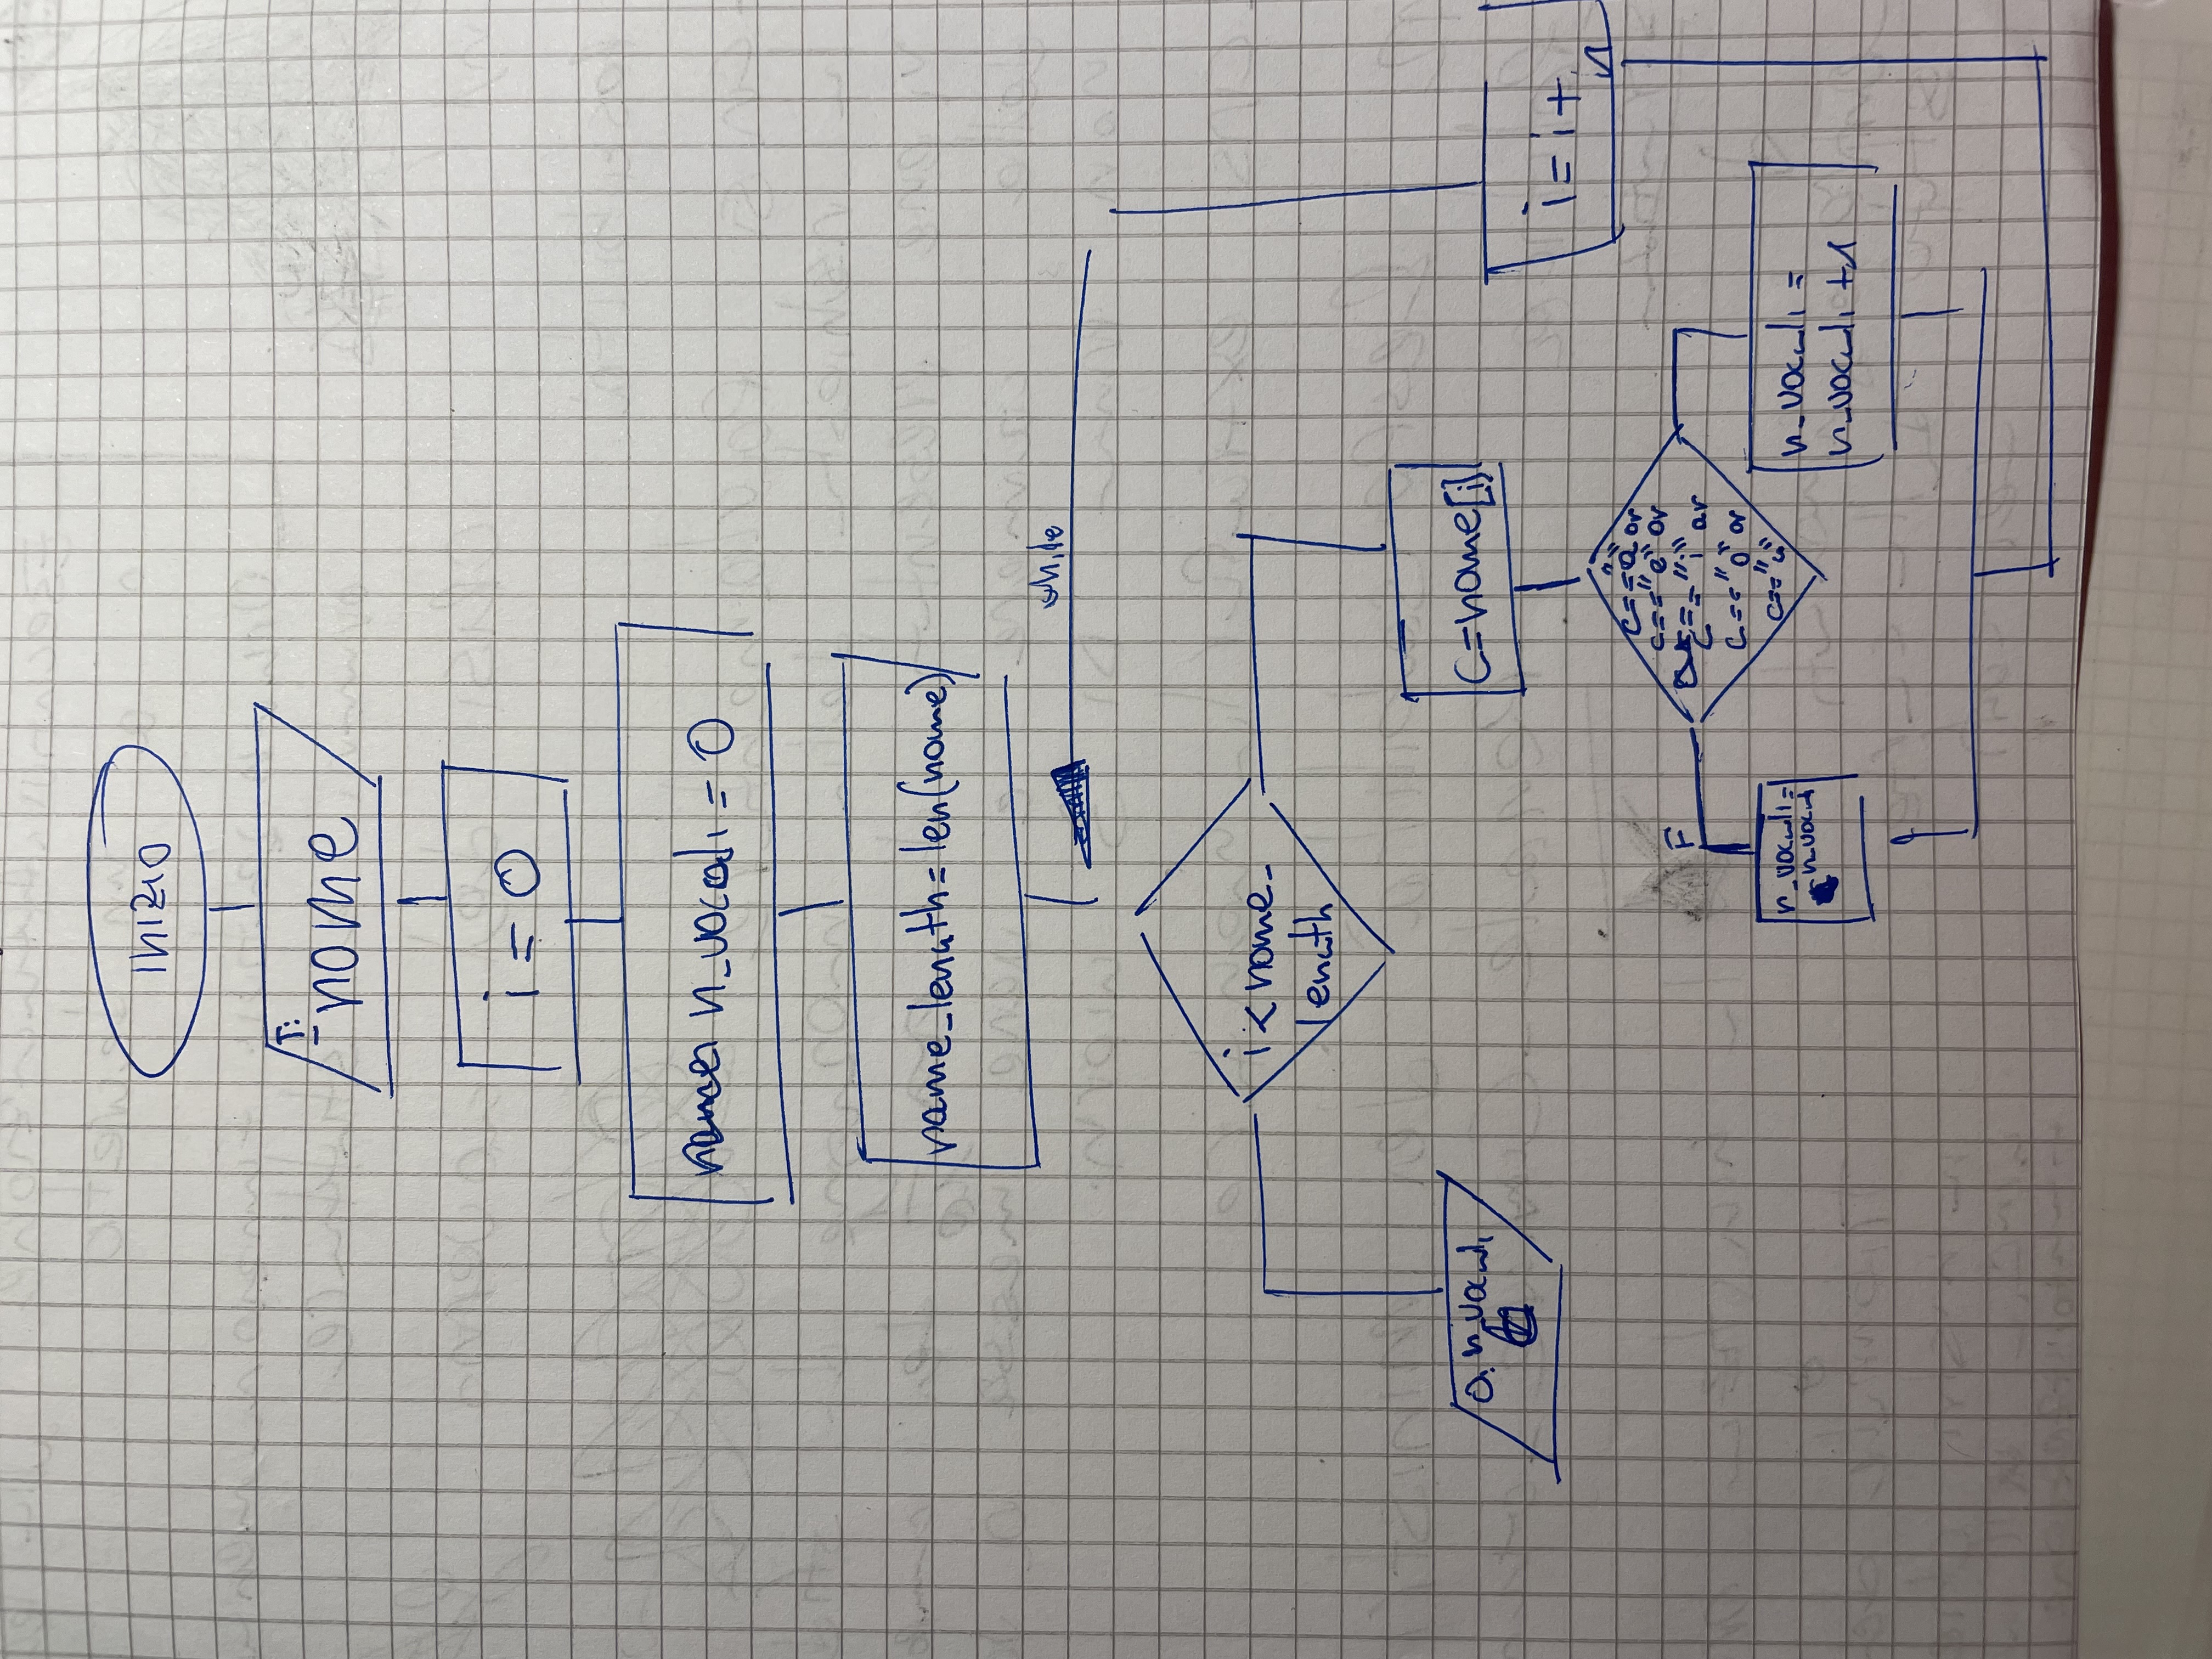 inizio
I:
nome
i = 0
n_vocali = 0
name_length=len(nome)
while
i < nome_
length
O: n_vocali
c=nome[i]
i = i +1
c=="a" or
c=="e" or
c=="i" or
c=="o" or
c=="u"
F
n_vocali =
n_vocali
n_vocali =
n_vocali +1